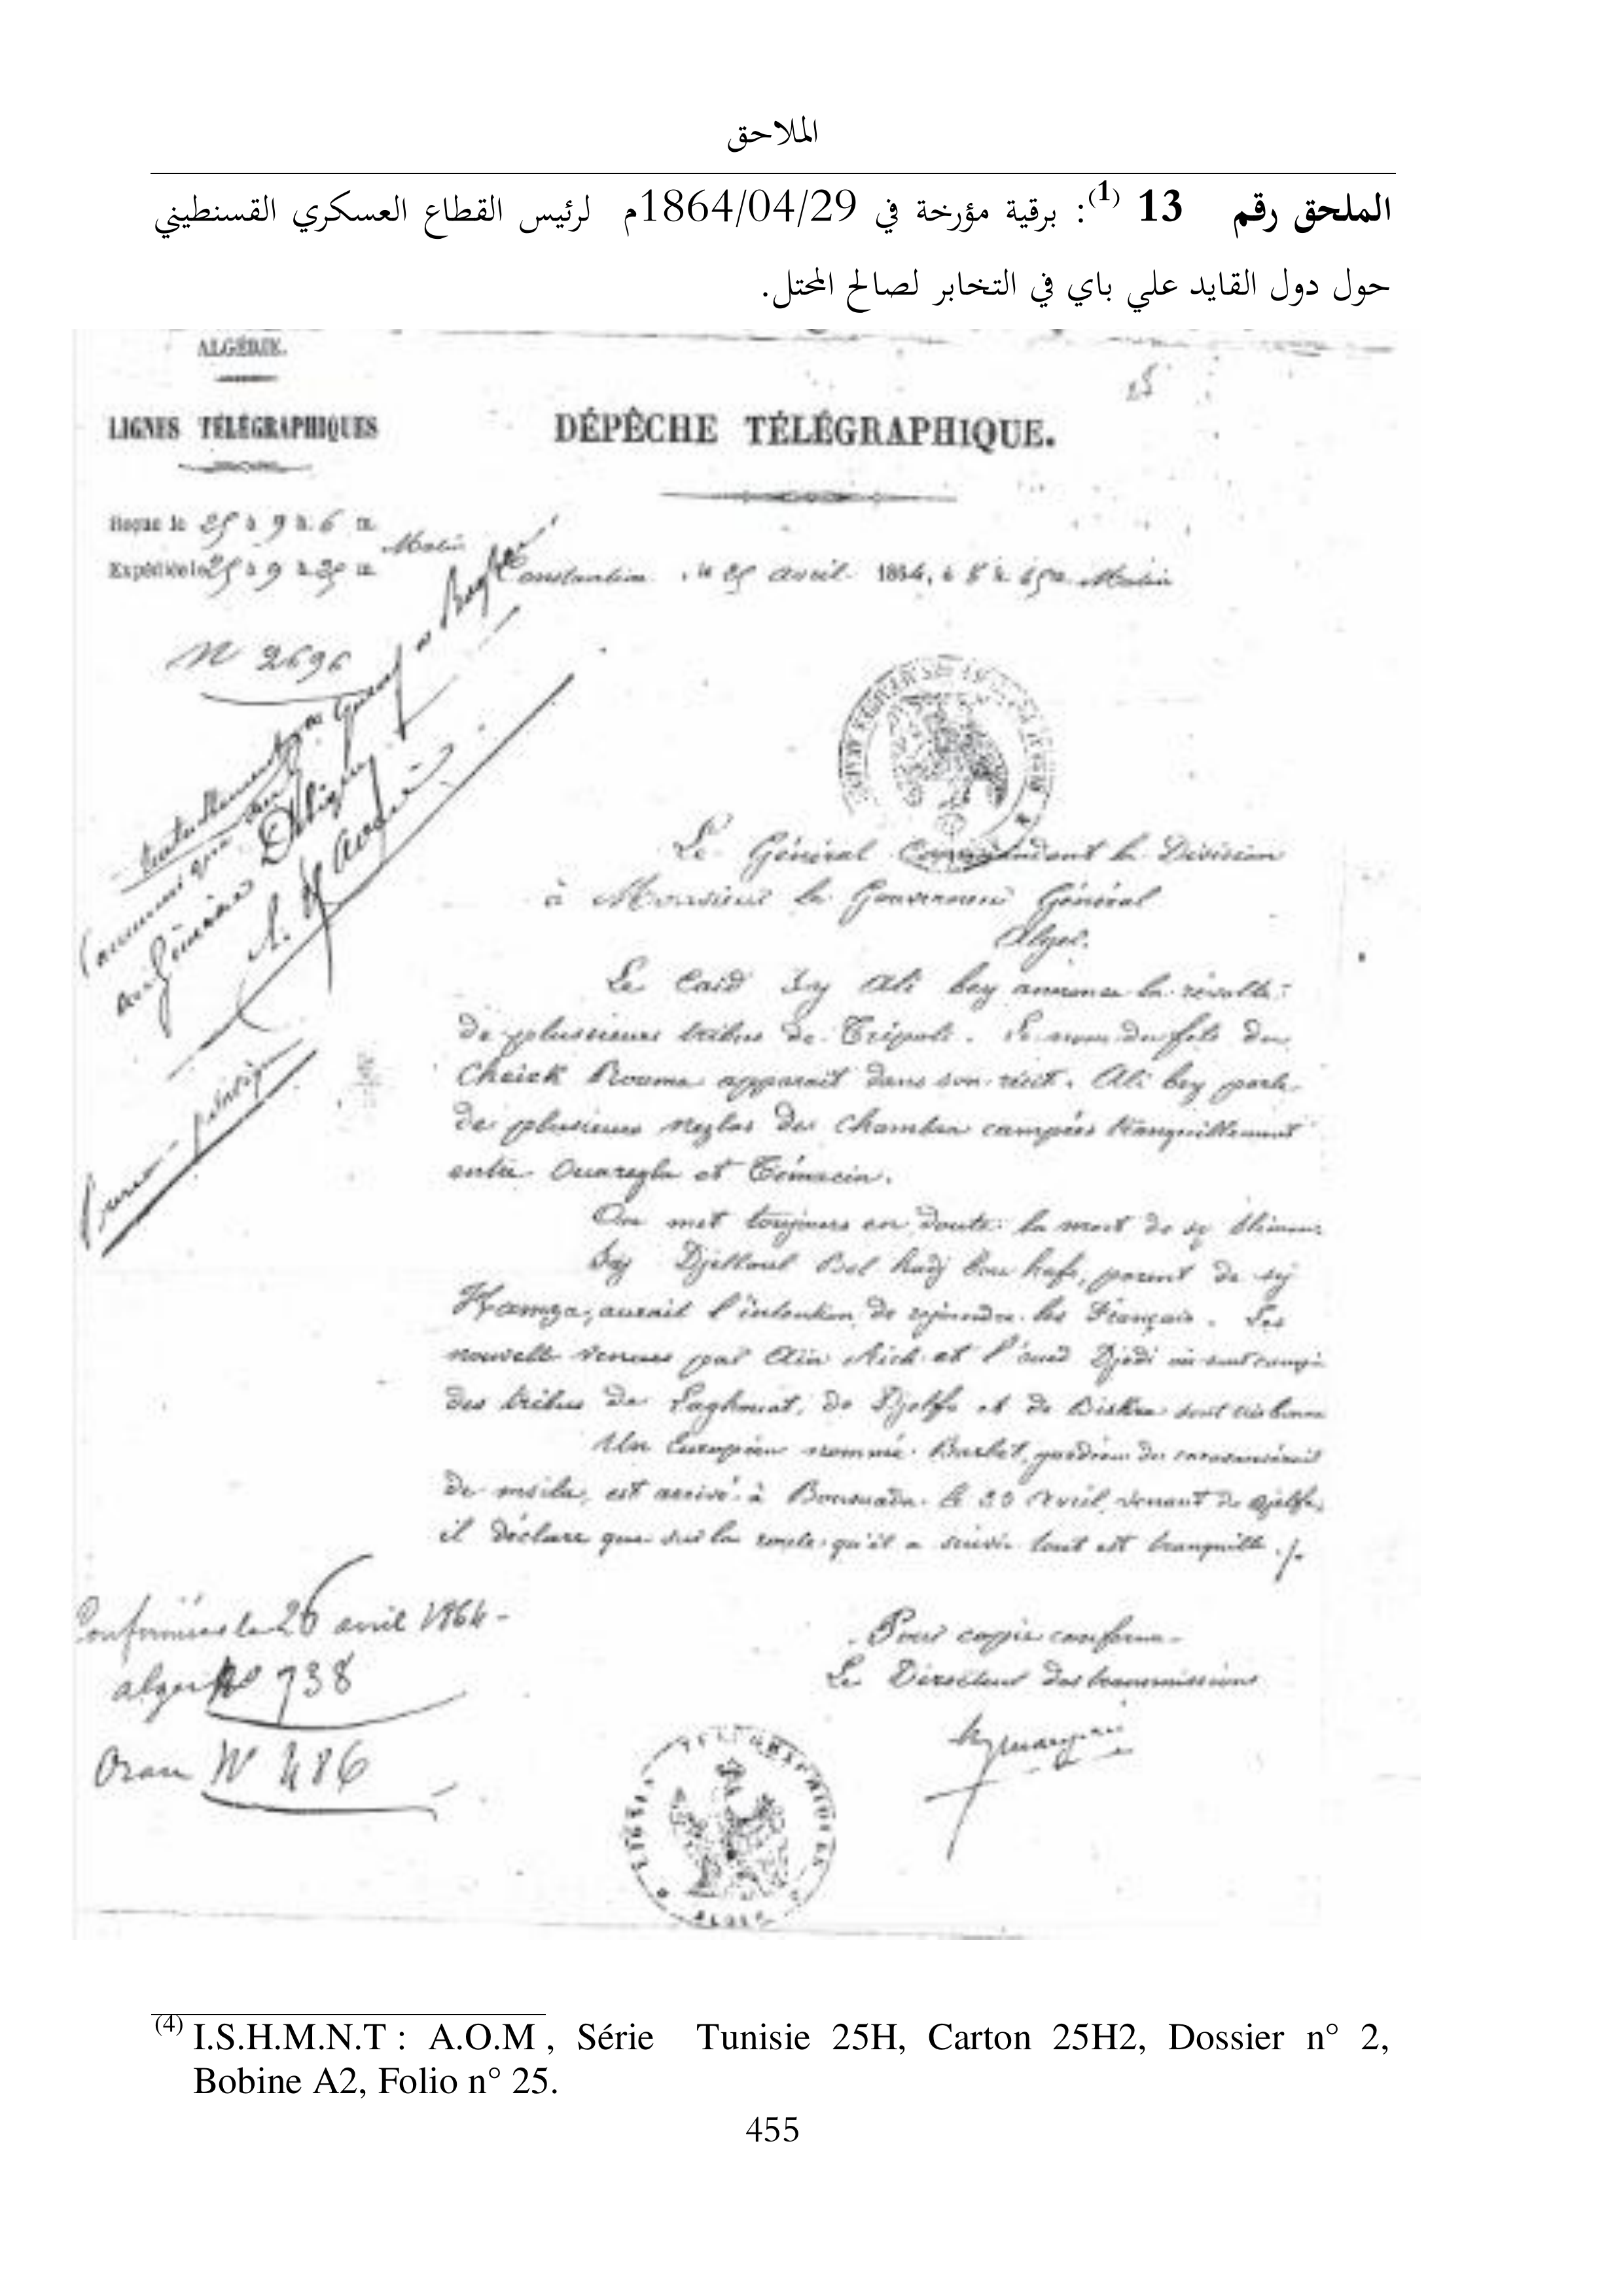 الملاحق
الملحق رقم 13 (1): برقية مؤرخة في 1864/04/29م لرئيس القطاع العسكري القسنطيني
حول دول القايد علي باي في التخابر لصالح المحتل.
ALGÉRIE.
LIGNES TÉLÉGRAPHIQUES
DÉPÊCHE TÉLÉGRAPHIQUE.
Reçue le 25 à 9 h. 6 m. Matin
Expédiée le 25 à 9 h. m.
Constantine, le 25 avril 1864, à 8 h. 45 m. Matin
N° 2696
Le Général Commandant la Division
à Monsieur le Gouverneur Général
Alger.
Le Caïd Sy Ali bey annonce la révolte
de plussieurs tribus de Tripoli. Le nom du fils du
Cheick Rouma apparait dans son récit. Ali bey parle
de plusieurs nezlas des Chamba campées tranquillement
entre Ouaregla et Témacin.
On met toujours en doute la mort de sy Sliman
Sy Djelloul Bel hadj bou hafs, parent de sy
Hamza, aurait l'intention de rejoindre les Français. Les
nouvelle venues par Aïn Rich et l'oued Djedi où sont campé
des tribus de Laghouat, de Djelfa et de Biskra sont très bonne
Un Européen nommé Barbet, gardien du caravansérail
de msila, est arrivé à Bousaada le 20 Avril, venant de Djelfa,
il déclare que sur la route qu'il a suivie tout est tranquille ./.
Pour copie conforme
Le Directeur des transmissions
avril 1864
alger N° 738
Oran N° 486
LIGNES TÉLÉGRAPHIQUES
ALGER
(4) I.S.H.M.N.T : A.O.M , Série Tunisie 25H, Carton 25H2, Dossier n° 2,
Bobine A2, Folio n° 25.
455